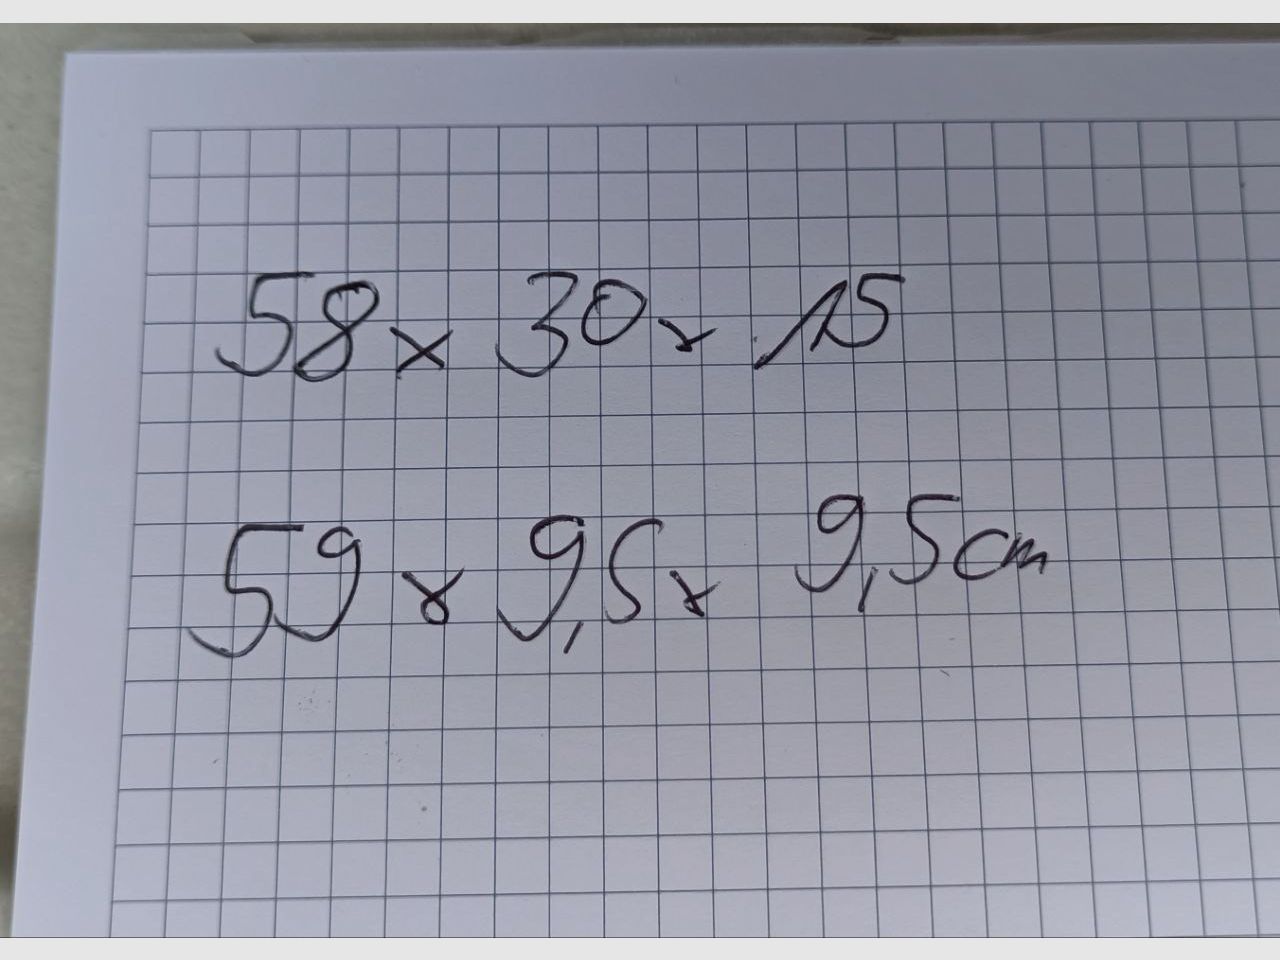 58 x 30 x 15
59 x 9,5 x 9,5 cm